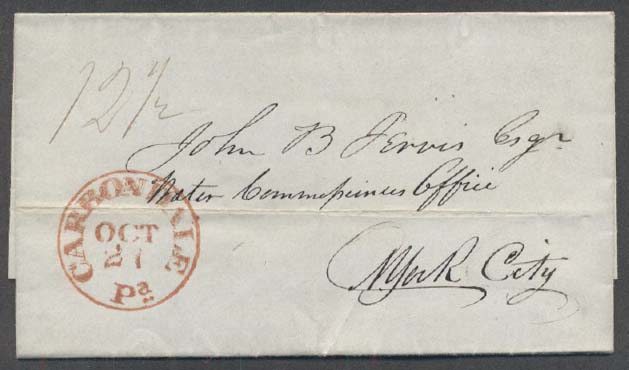 12 1/2
John B Jervis Esqr
Water Commissiners Office
N York City
CARBONDALE
OCT
27
Pa